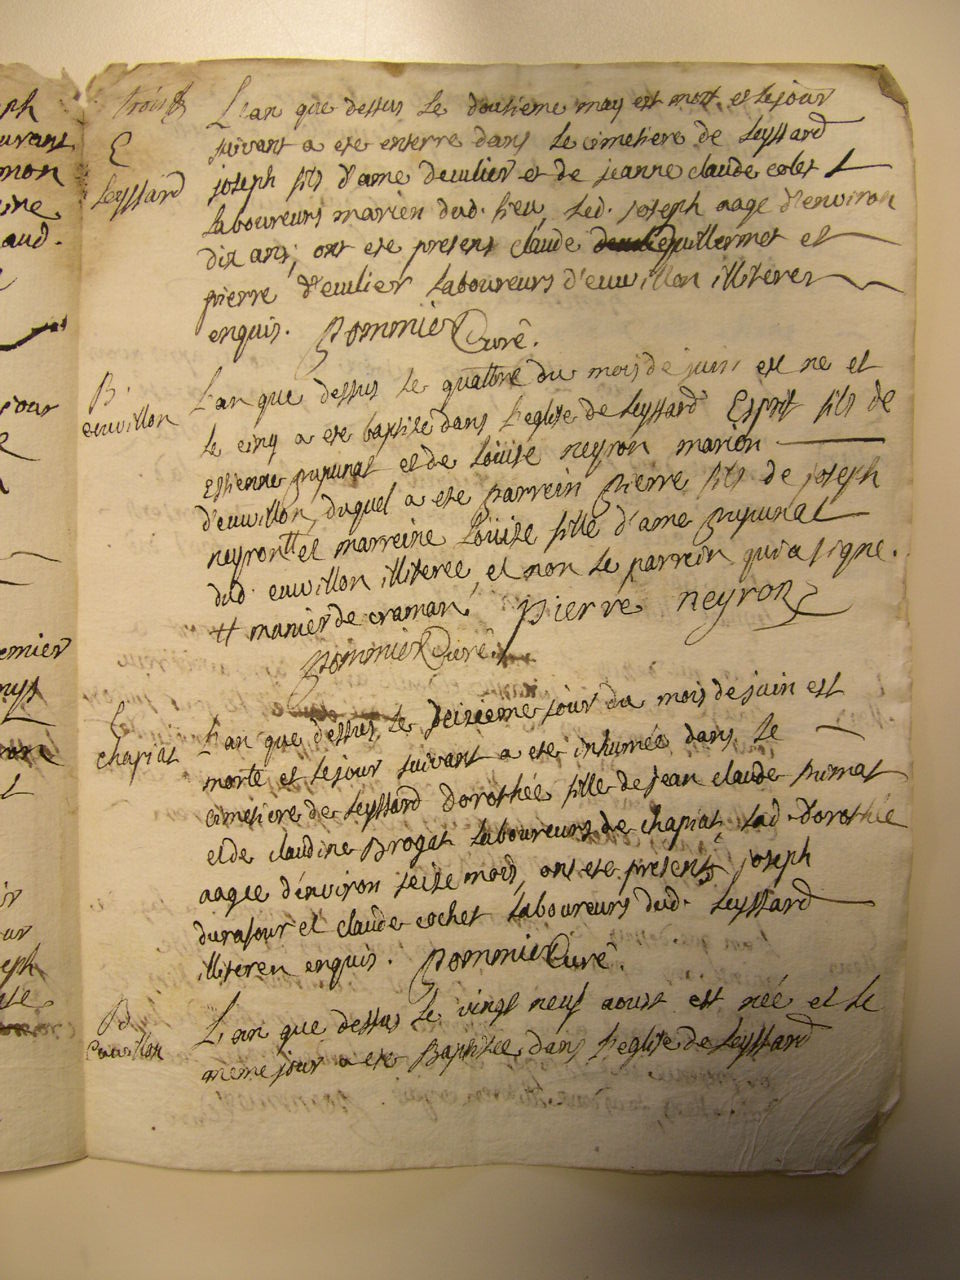 trois
E
Leyssard
L'an que dessus le dousieme may est mort et le jour
suivant a ete enterre dans le cimetiere de Leyssard
joseph fils d'ame deculier et de jeanne claude colet
laboureurs marien dud. lieu, led. joseph aage d'environ
dix ans; ont ete presens claude guillermet et
pierre d'eculier laboureurs d'euvillon illiteres
enquis. Pommier Curé.
B.
euvillon
L'an que dessus le quattre du mois de juin est ne et
le cinq a ete baptise dans l'eglise de Leyssard Esprit fils de
Estienne pupunat et de Louise neyron marien
d'euvillon, duquel a ete parrein pierre fils de joseph
neyron # et marreine Louise fille d'ame pupunat
dud. euvillon illiteree, et non le parrein qui a signe.
# manier de craman, Pierre neyron
Pommier Curé.
E
chapiat
L'an que dessus le seisieme jour du mois de juin est
morte et le jour suivant a ete inhumée dans le
cimetiere de Leyssard Dorothée fille de jean claude primat
et de claudine Brogat laboureurs de chapiat, lad. Dorothée
aagee d'environ seise mois, ont ete presents joseph
durafour et claude cochet laboureurs dud. Leyssard
illiteren enquis. Pommier Curé.
B
Euvillon
L'an que dessus le vingt neuf aoust est née et le
meme jour a ete Baptisee dans l'eglise de Leyssard